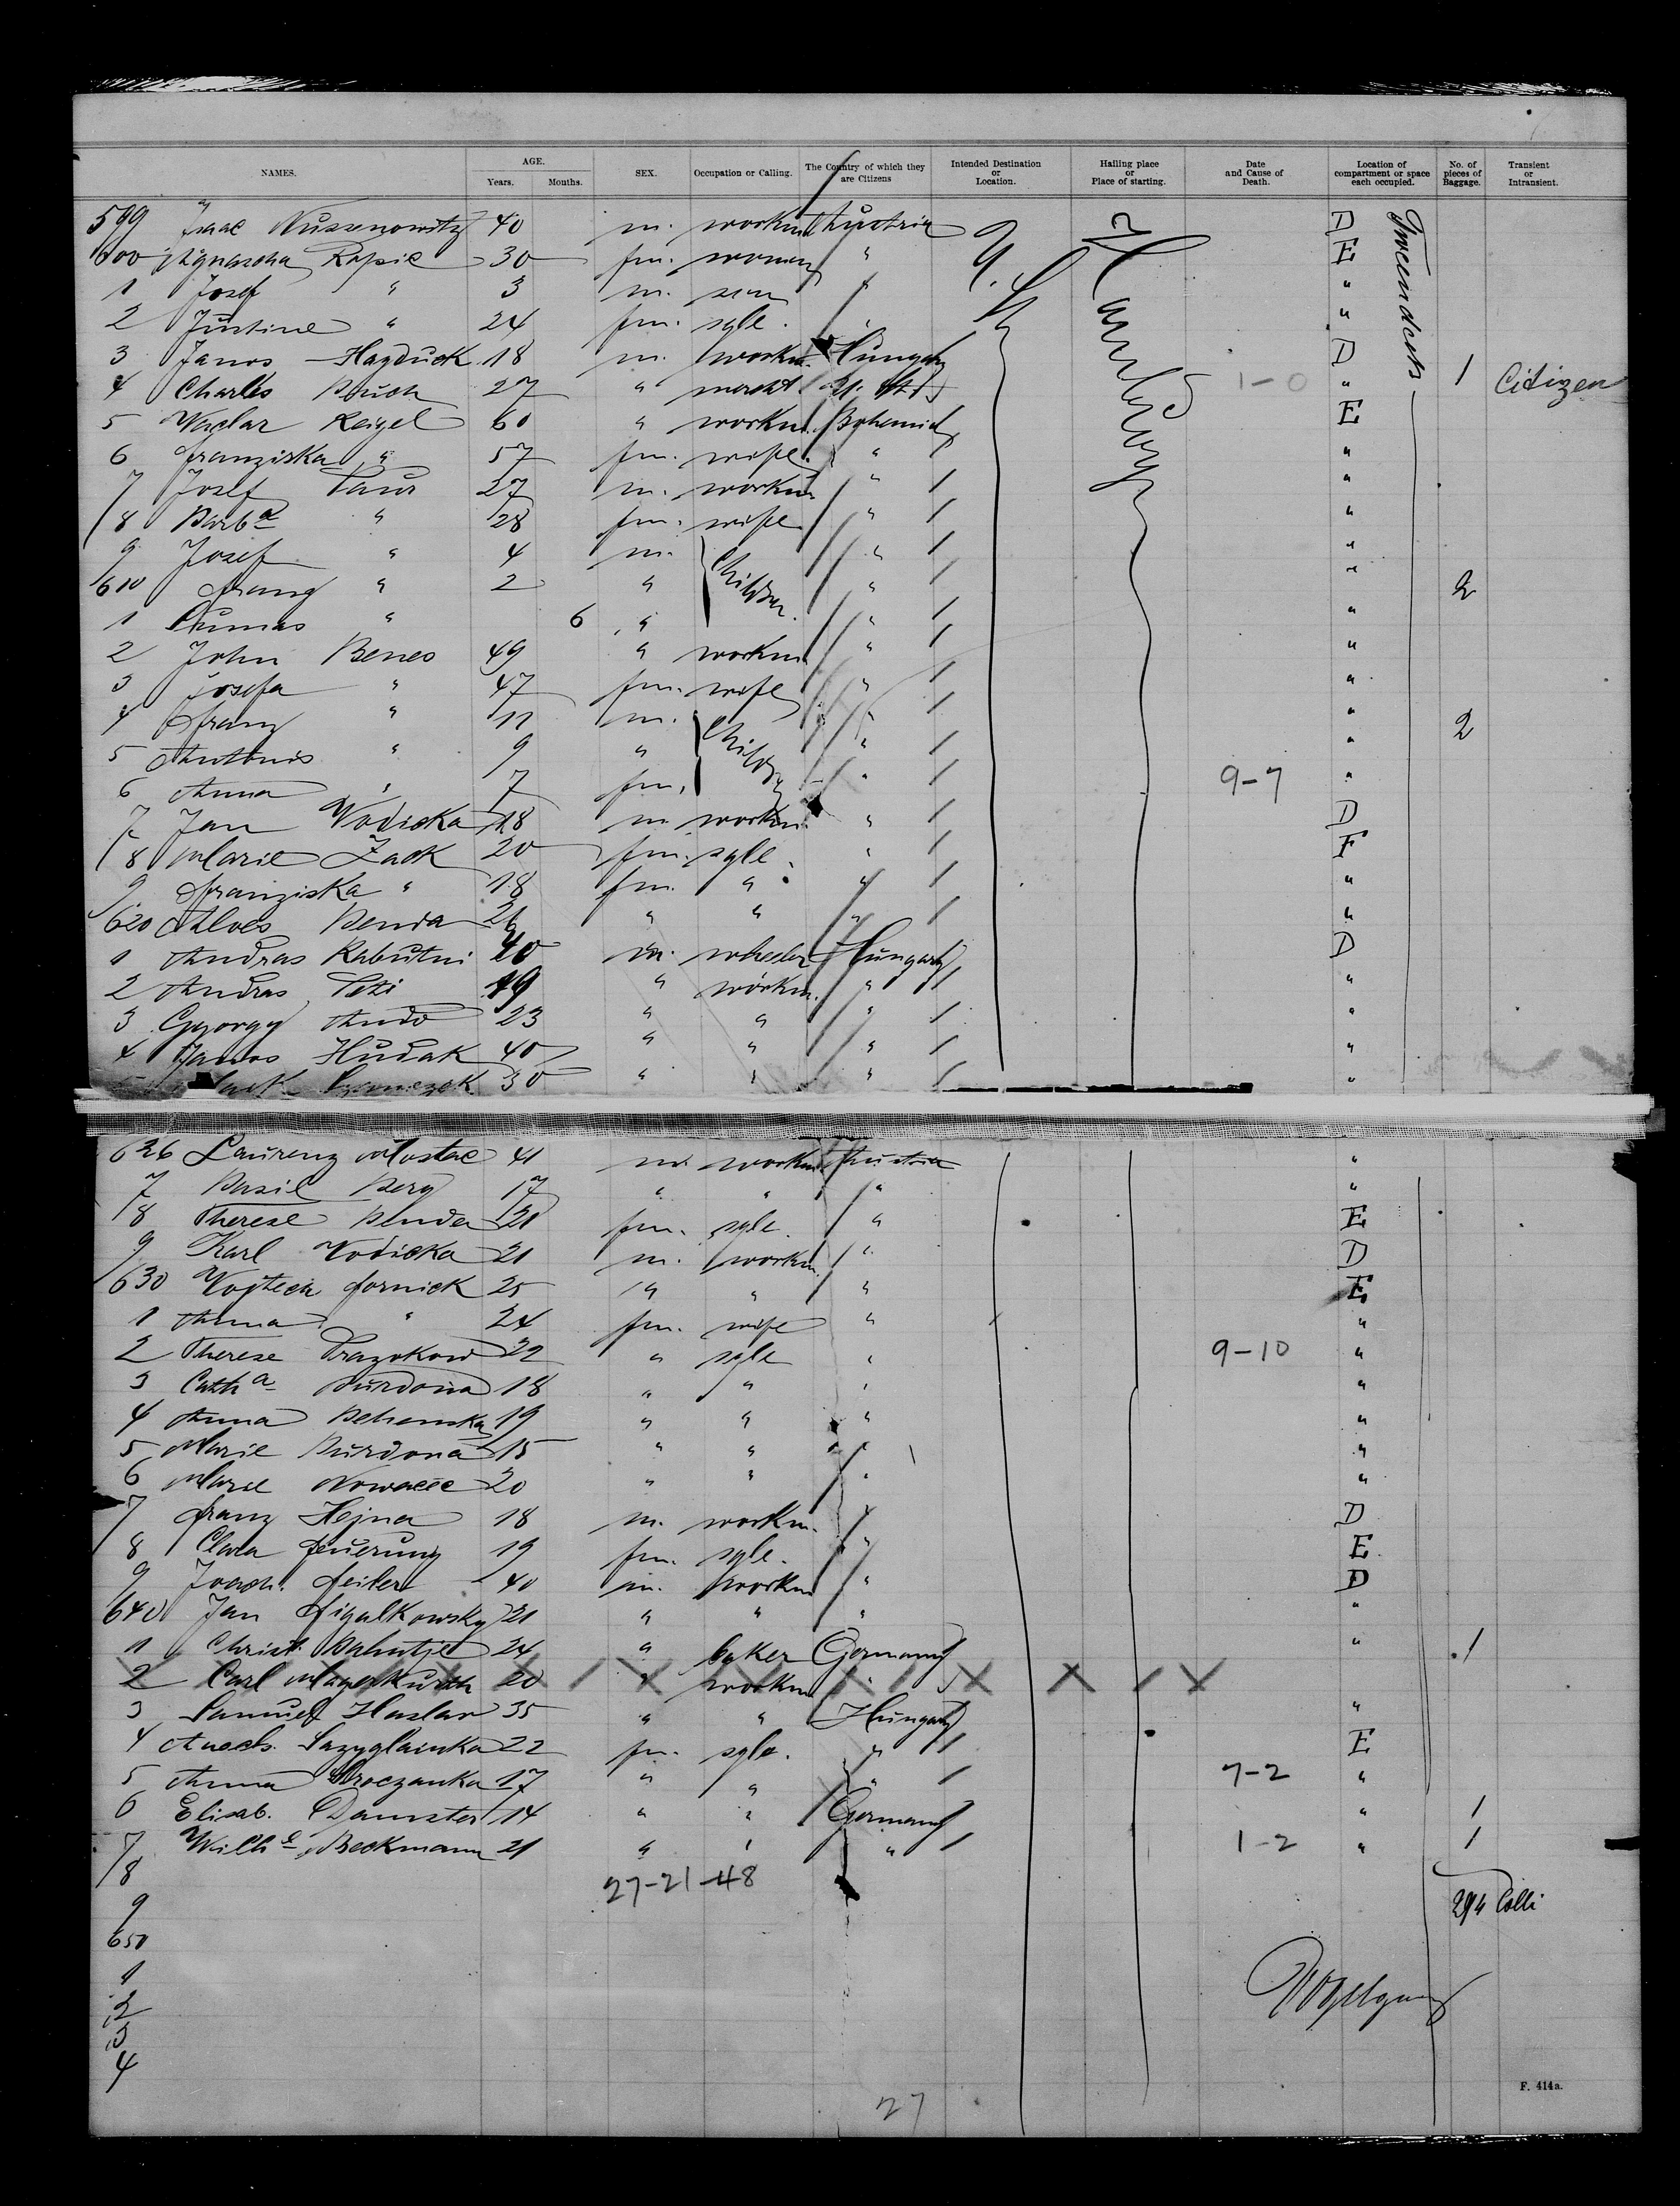 NAMES. AGE. Years. Months. SEX. Occupation or Calling. The Country of which they are Citizens Intended Destination or Location. Hailing place or Place of starting. Date and Cause of Death. Location of compartment or space each occupied. No. of pieces of Baggage. Transient or Intransient.
599 Isaac Nussenowitz 40 m. workm. Austria U. St. Hamburg D Tweendeck
600 Kopsic 30 fm. woman " E
1 Josef " 3 m. son " "
2 Justine " 24 fm. sgle. " "
3 Janos Hayduck 18 m. workm. Hungary D
4 Charles Bruch 27 " mercht. U. St. 1-0 " 1 Citizen
5 Waclav Reizel 60 " workm. Bohemia E
6 Franziska " 57 fm. wife " "
7 Josef Paur 27 m. workm. " "
8 Barba " 28 fm. wife " "
9 Josef " 4 m. Children " "
610 Franz " 2 " " " 2
1 " 6 " " "
2 John Benes 49 " workm. " "
3 Josefa " 47 fm. wife " "
4 Franz " 11 m. Children " " 2
5 Antonis " 9 " " "
6 Anna " 7 fm. " 9-7 "
7 Jan Wodicka 18 m. workm. " D
8 Marie Zack 20 fm. sgle. " E
9 Franziska " 18 fm. " " "
620 Aloes Benda 26 " " " "
1 Andras Rabutni 40 m. Hungary D
2 Andras 49 " workm. " "
3 Gyorgy Ando 23 " " " "
4 Janos Hudak 40 " " " "
30 " " " "
626 Laurenz Mostac 41 m. workm. Austria "
7 Basil Berg 17 " " " "
8 Therese Benda 21 fm. sgle. " E
9 Karl Wodicka 21 m. workm. " D
630 Wojtech Fornick 25 " " " E
1 Anna " 24 fm. wife " "
2 Therese Prazokow 22 " sgle " 9-10 "
3 Catha Burdona 18 " " " "
4 Anna Behenska 19 " " " "
5 Marie Burdona 15 " " " "
6 Marie Nowacec 20 " " " "
7 Franz Hejna 18 m. workm. " D
8 Clara Feuerung 19 fm. sgle. " E
9 Joach. Feiler 40 m. workm " D
640 Jan Figalkowsky 21 " " " "
1 Christ. Bahntje 24 " baker Germany " 1
2 Carl Magerkurth 20 " workm "
3 Samuel Haslar 35 " " Hungary "
4 Sazyglainka 22 fm. sgle. " E
5 Anna Kroczanka 17 " " " 7-2 "
6 Elisab. Damster 14 " " Germany " 1
7 Wilhe Beckmann 21 " " " 1-2 " 1
8 27-21-48
9 294 Colli
650
1 Vogelgesang
2
3
4
F. 414a.
27